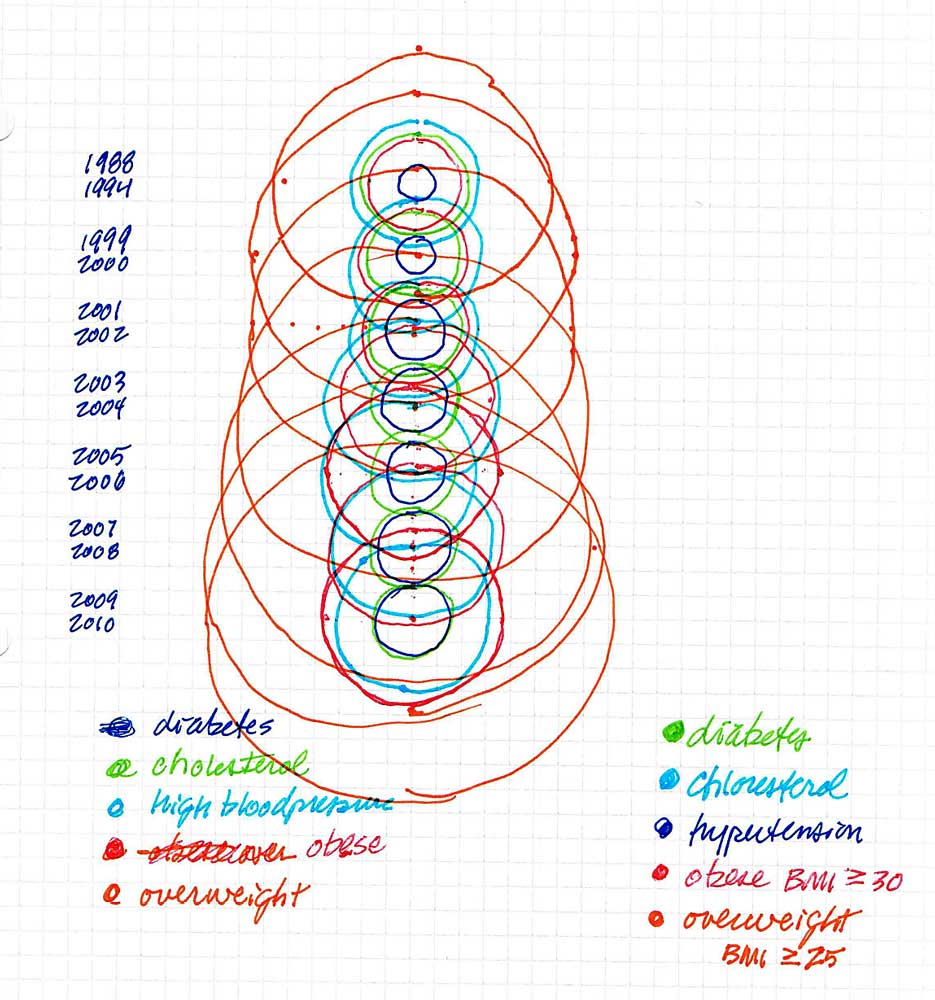 1988
1994
1999
2000
2001
2002
2003
2004
2005
2006
2007
2008
2009
2010
diabetes
cholesterol
high bloodpressure
obese
overweight
diabetes
chloresterol
hypertension
obese BMI ≥ 30
overweight
BMI ≥ 25